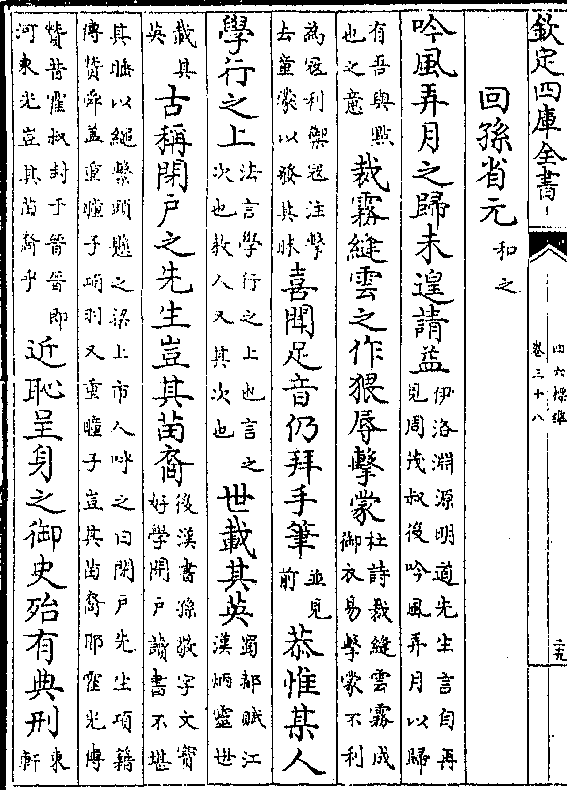 欽定四庫全書
四六標準
卷三十八
回孫省元和之
吟風弄月之歸未遑請益伊洛淵源明道先生言自再見周茂叔後吟風弄月以歸
有吾與點也之意裁霧縫雲之作猥辱擊蒙杜詩裁縫雲霧成御衣易擊蒙不利
為寇利禦寇注擊去童蒙以發其昧喜聞足音仍拜手筆並見前恭惟某人
學行之上法言學行之上也言之次也教人又其次也世載其英蜀都賦江漢炳靈世
載其英古稱閉戶之先生豈其苗裔後漢書孫敬字文寶好學閉戶讀書不堪
其睡以繩繫頭懸之梁上市人呼之曰閉戶先生項籍傳贊舜蓋重瞳子項羽又重瞳子豈其苗裔耶霍光傳
贊昔霍叔封于晉晉即河東光豈其苗裔乎近恥呈身之御史殆有典刑東軒